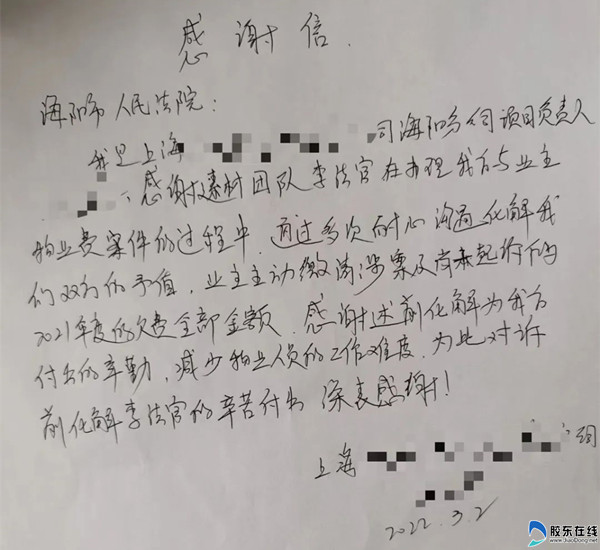 感谢信
海阳市人民法院：
我是上海 司海阳分公司项目负责人
感谢 团队李法官在办理我方与业主
物业费案件的过程中，通过多次耐心沟通化解我
们双方的矛盾，业主主动缴清涉案及尚未起诉的
2021年度的欠费全部金额，感谢 前化解为我方
付出的辛勤，减少物业人员的工作难度，为此对诉
前化解李法官的辛苦付出深表感谢！
上海
2022.3.2
胶东在线
www.JiaoDong.net